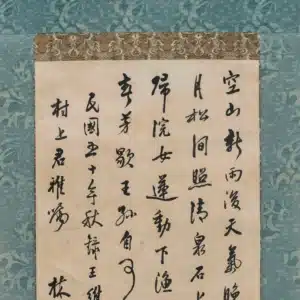 空山新雨後天氣晚
月松間照清泉石上
歸浣女蓮動下漁
春芳歇王孫自可
民國五十年秋錄王維
村上君雅囑 林